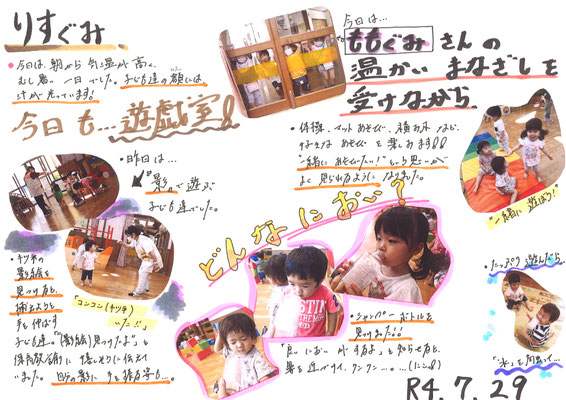 りすぐみ
・今日は、朝から気温が高く、
むし暑い一日でした。子ども達の額には
汗が光っています!
今日も…遊戯室!
・昨日は…
"影"で遊ぶ
子ども達でした。
・キツネの
影絵を
見つける
手を伸ばす
子ども達。"(影絵)見つけたよ"と
保育教諭に嬉しそうに伝えて
いました。
「コンコン(キツネ)
いた!!」
今日は…
ももぐみさんの
温かいまなざしを
受けながら
・体操、マットあそび、積み木など、
様々なあそびを楽しみます!!
"一緒にあそびたい!"という思いが
よく見られるようになりました。
"一緒に遊ぼう!"
どんなにおい?
・シャンプーボトルを
見つけました!!
「良いにおいがするよ」と知らせると
鼻を近づけて、クンクン・・・
・たっぷり遊んだら…
R4.7.29